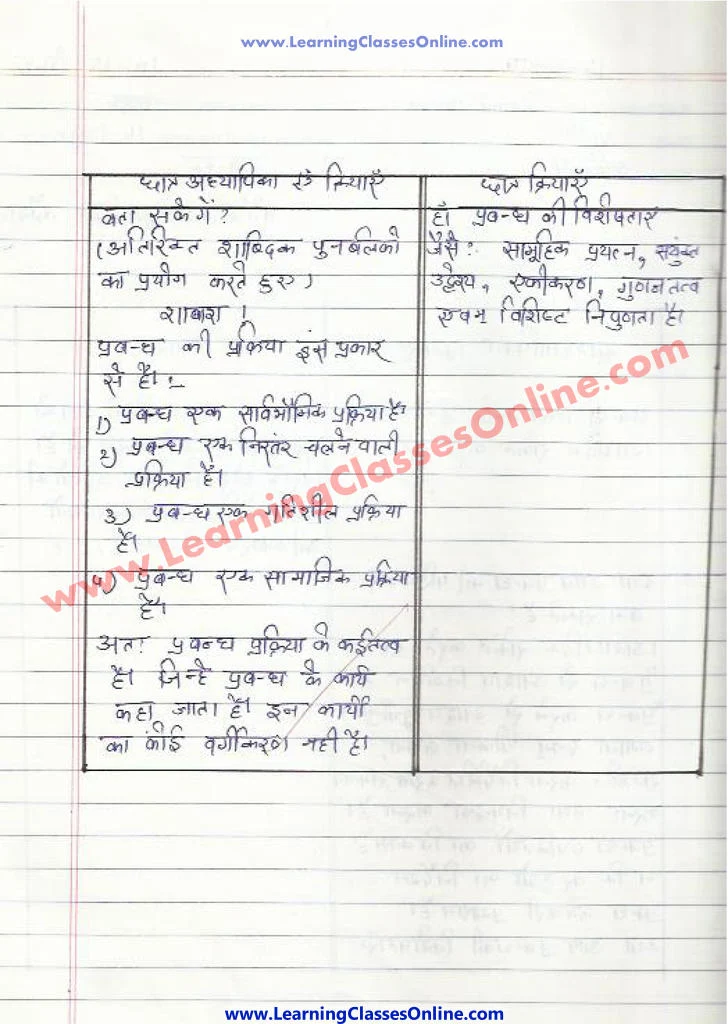 www.LearningClassesOnline.com
छात्र अध्यापिका एंव क्रियाएँ
बता सकेगें?
(अतिरिक्त शाब्दिक पुनर्बलको
का प्रयोग करते हुए)
शाबाश।
प्रबन्ध की प्रक्रिया इस प्रकार
से है। :-
1) प्रबन्ध एक सार्वभौमिक प्रक्रिया है।
2) प्रबन्ध एक निरंतर चलने वाली
प्रक्रिया है।
3) प्रबन्ध एक गतिशील प्रक्रिया
है।
4) प्रबन्ध एक सामाजिक प्रक्रिया
है।
अतः प्रबन्ध प्रक्रिया के कई तत्व
है। जिन्हे प्रबन्ध के कार्य
कहा जाता है। इन कार्यो
का कोई वर्गीकरण नही है।
छात्र क्रियाएँ
हाँ प्रबन्ध की विशेषताएं
जैसे: सामूहिक प्रयत्न, सयुंक्त
उद्देश्य, एकीकरण, गुणन तत्व
एवम् विशिष्ट निपुणता है।
www.LearningClassesOnline.com
www.LearningClassesOnline.com